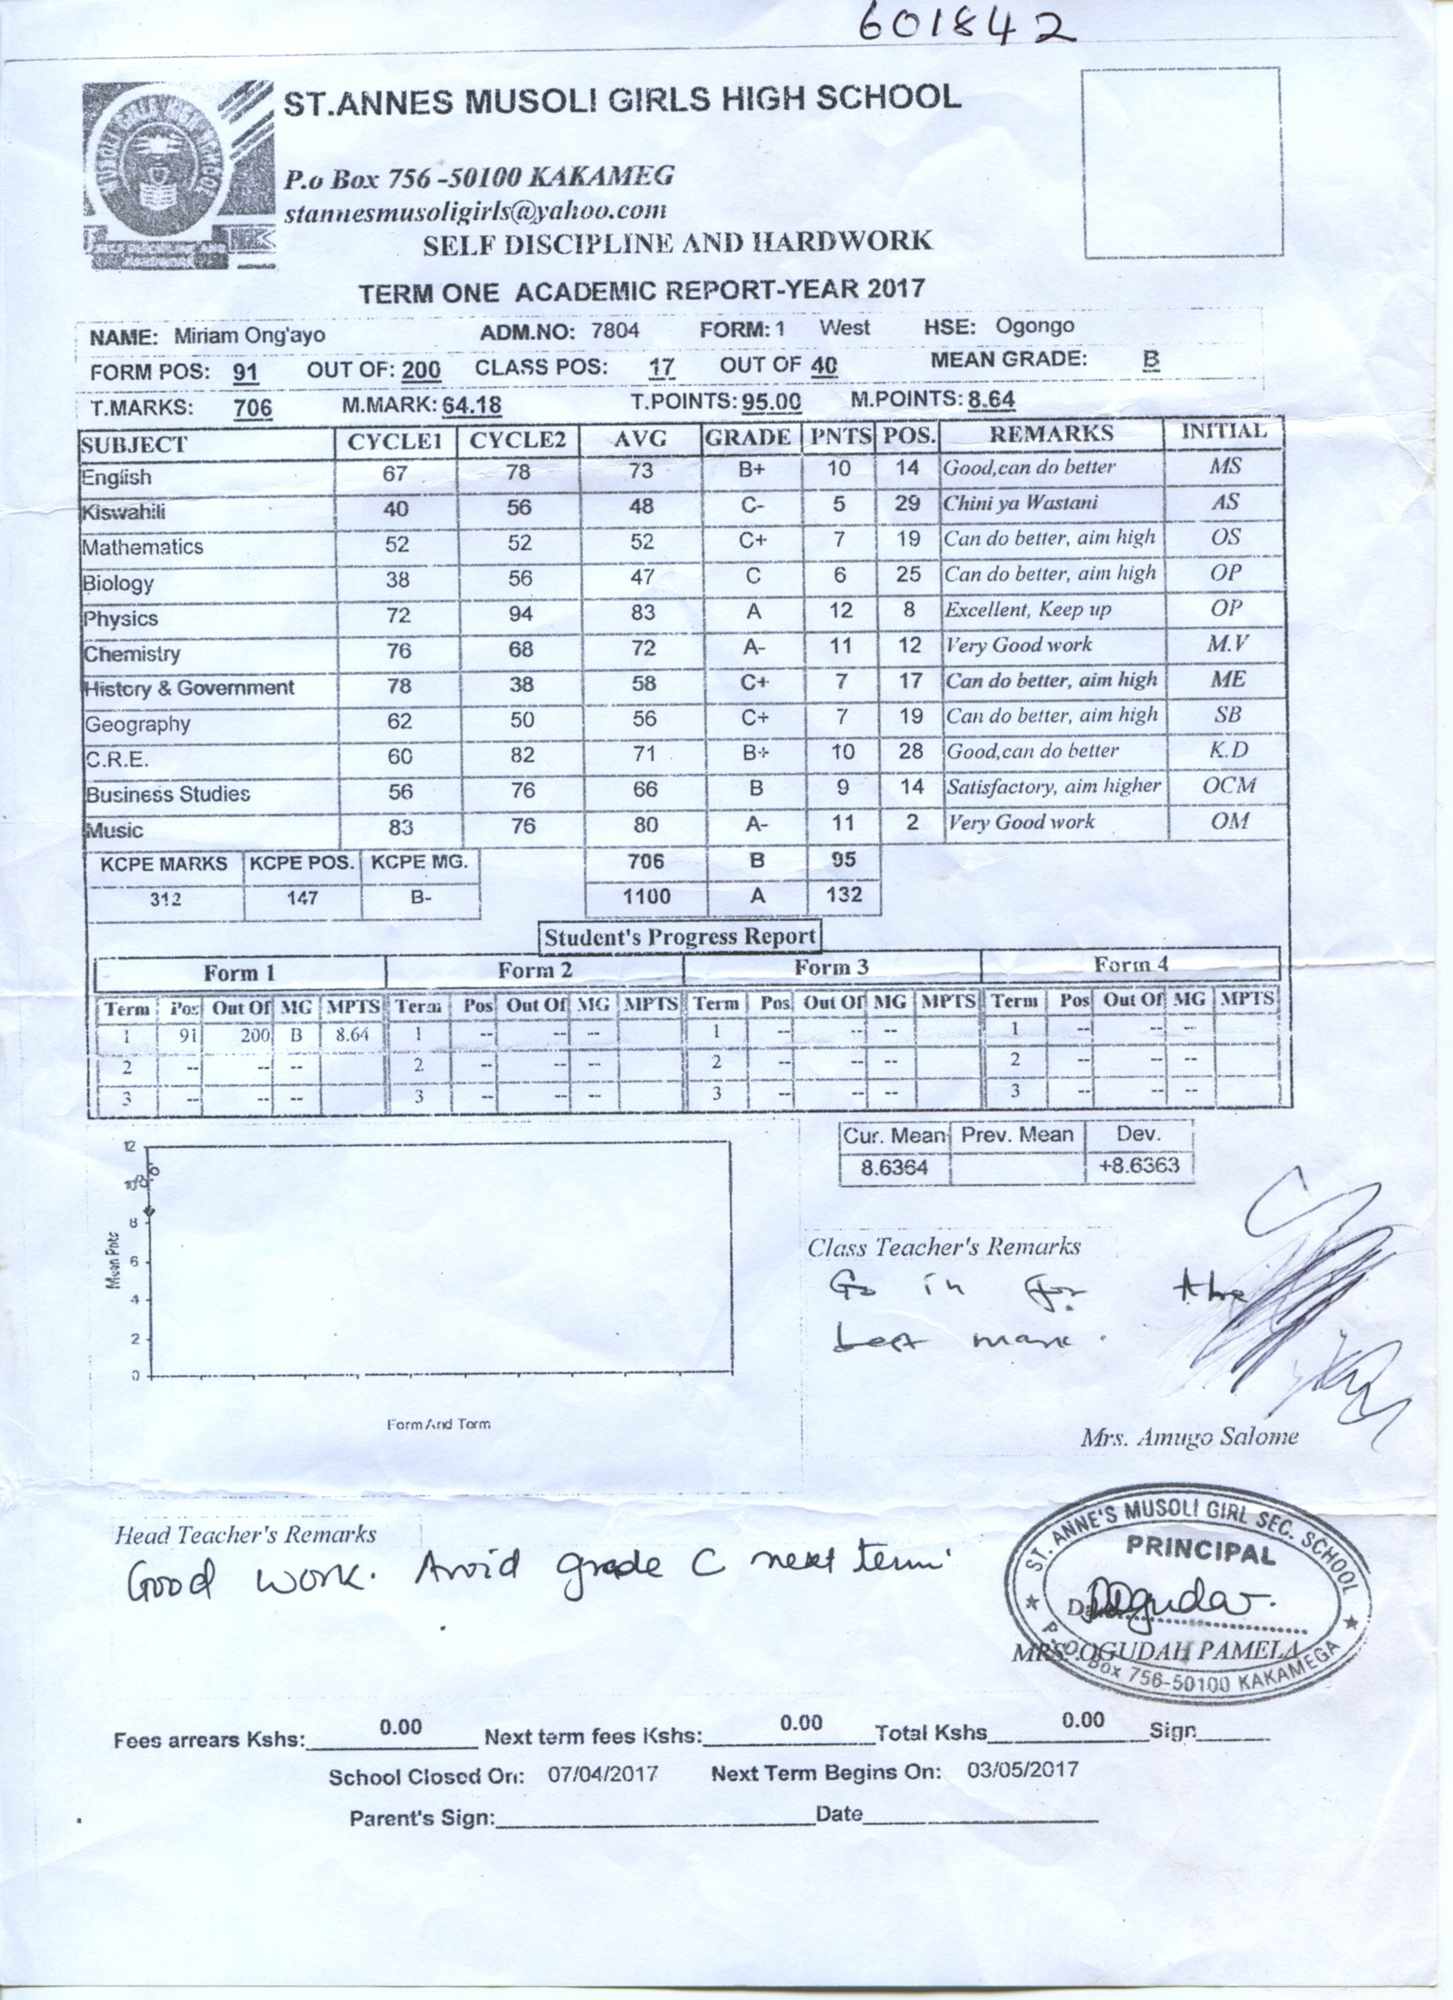 601842
ST.ANNES MUSOLI GIRLS HIGH SCHOOL
P.o Box 756 -50100 KAKAMEG
stannesmusoligirls@yahoo.com
SELF DISCIPLINE AND HARDWORK
TERM ONE ACADEMIC REPORT-YEAR 2017
NAME: Miriam Ong'ayo ADM.NO: 7804 FORM: 1 West HSE: Ogongo
FORM POS: 91 OUT OF: 200 CLASS POS: 17 OUT OF 40 MEAN GRADE: B
T.MARKS: 706 M.MARK: 64.18 T.POINTS: 95.00 M.POINTS: 8.64
SUBJECT CYCLE1 CYCLE2 AVG GRADE PNTS POS. REMARKS INITIAL
English 67 78 73 B+ 10 14 Good,can do better MS
Kiswahili 40 56 48 C- 5 29 Chini ya Wastani AS
Mathematics 52 52 52 C+ 7 19 Can do better, aim high OS
Biology 38 56 47 C 6 25 Can do better, aim high OP
Physics 72 94 83 A 12 8 Excellent, Keep up OP
Chemistry 76 68 72 A- 11 12 Very Good work M.V
History & Government 78 38 58 C+ 7 17 Can do better, aim high ME
Geography 62 50 56 C+ 7 19 Can do better, aim high SB
C.R.E. 60 82 71 B+ 10 28 Good,can do better K.D
Business Studies 56 76 66 B 9 14 Satisfactory, aim higher OCM
Music 83 76 80 A- 11 2 Very Good work OM
KCPE MARKS KCPE POS. KCPE MG. 706 B 95
312 147 B- 1100 A 132
Student's Progress Report
Form 1 Form 2 Form 3 Form 4
Term Pos Out Of MG MPTS Term Pos Out Of MG MPTS Term Pos Out Of MG MPTS Term Pos Out Of MG MPTS
1 91 200 B 8.64 1 -- -- -- 1 -- -- -- 1 -- -- --
2 -- -- -- 2 -- -- -- 2 -- -- -- 2 -- -- --
3 -- -- -- 3 -- -- -- 3 -- -- -- 3 -- -- --
Cur. Mean Prev. Mean Dev.
8.6364 +8.6363
12
10
8
6
4
2
0
Mean Pnts
Form And Term
Class Teacher's Remarks
Go in for the
best mark.
Mrs. Amugo Salome
Head Teacher's Remarks
Good work. Avoid grade C next term
ST. ANNE'S MUSOLI GIRL SEC. SCHOOL
PRINCIPAL
MRS. OGUDAH PAMELA
P.O. Box 756-50100 KAKAMEGA
Fees arrears Kshs: 0.00 Next term fees Kshs: 0.00 Total Kshs 0.00 Sign
School Closed On: 07/04/2017 Next Term Begins On: 03/05/2017
Parent's Sign: Date